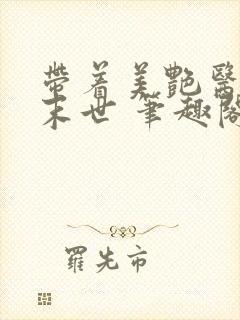 帶着美艷醫
末世 筆趣閣
羅先市